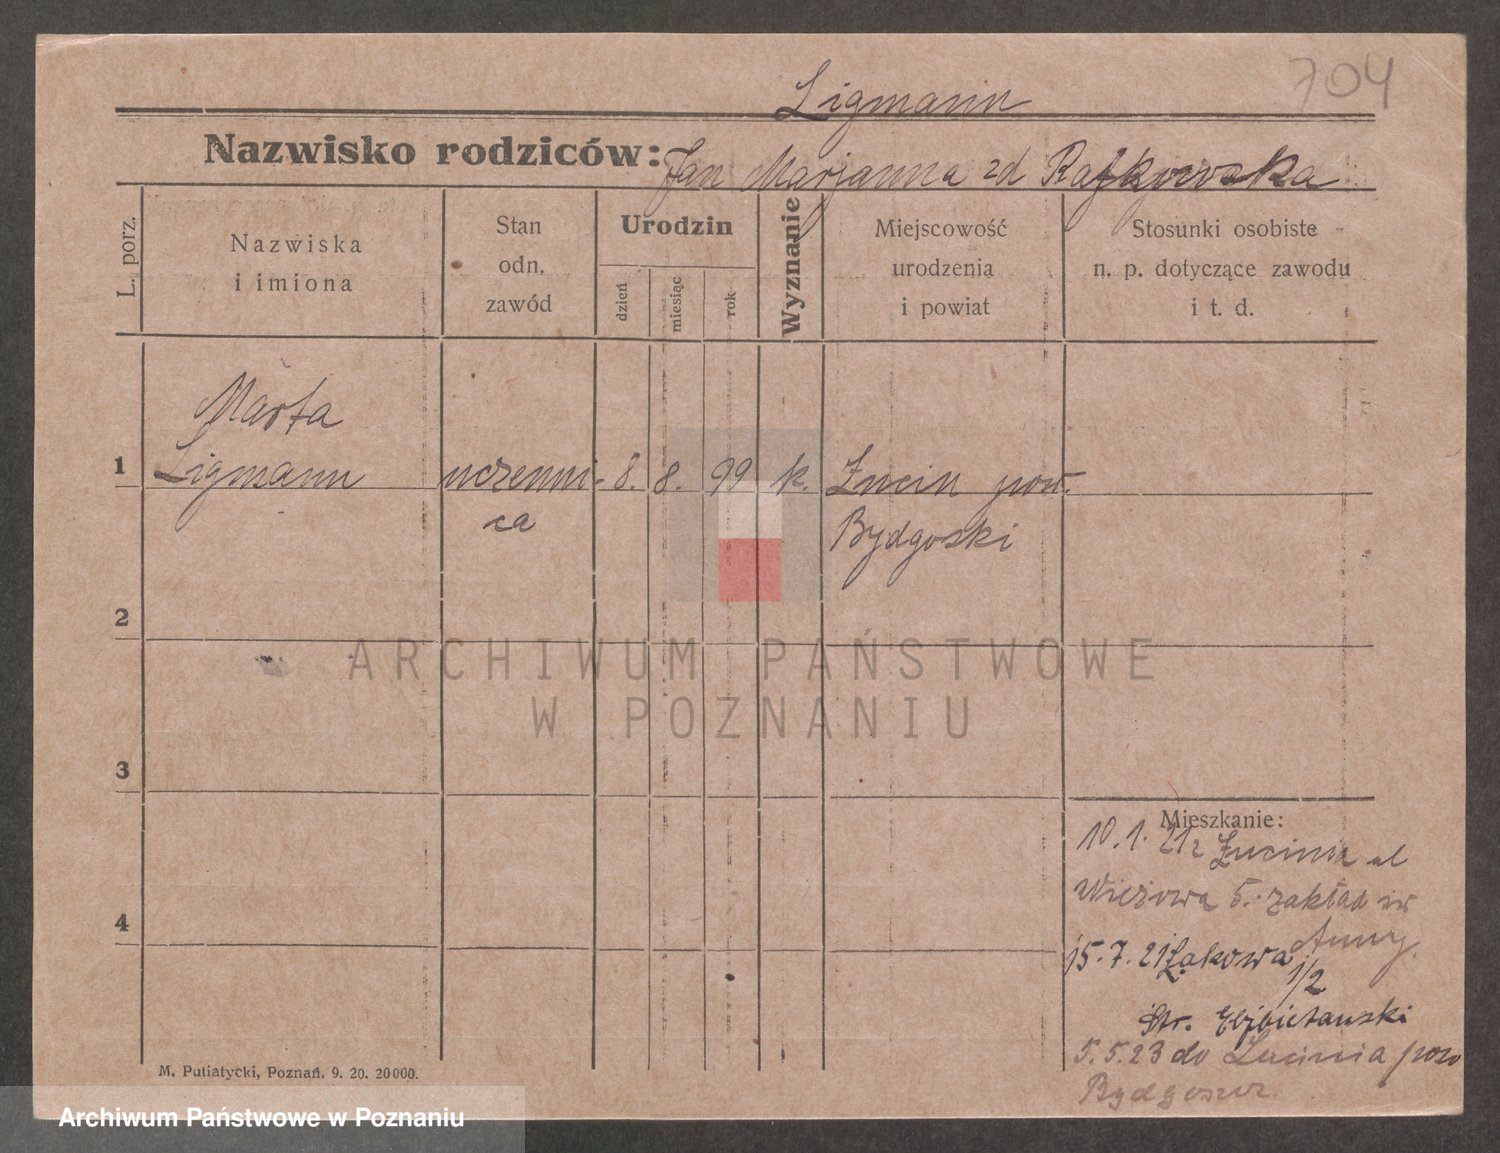 704
Ligmann
Nazwisko rodziców: Jan Marjanna zd Rafkowska
L. porz.
Nazwiska
i imiona
Stan
odn.
zawód
Urodzin
dzień
miesiąc
rok
Wyznanie
Miejscowość
urodzenia
i powiat
Stosunki osobiste
n. p. dotyczące zawodu
i t. d.
Marta
1 Ligmann uczenni- 8. 8. 99 k. Żucin pow.
ca Bydgoski
2
3
4
Mieszkanie:
10. 1. 21 z Żucina ul
Wieżowa 5. zakład św
Anny
15. 7. 21 Łąkowa 1/2
Str.
5. 5. 23 do pow
Bydgoszcz
M. Putiatycki, Poznań. 9. 20. 20000.
ARCHIWUM PAŃSTWOWE
W POZNANIU
Archiwum Państwowe w Poznaniu